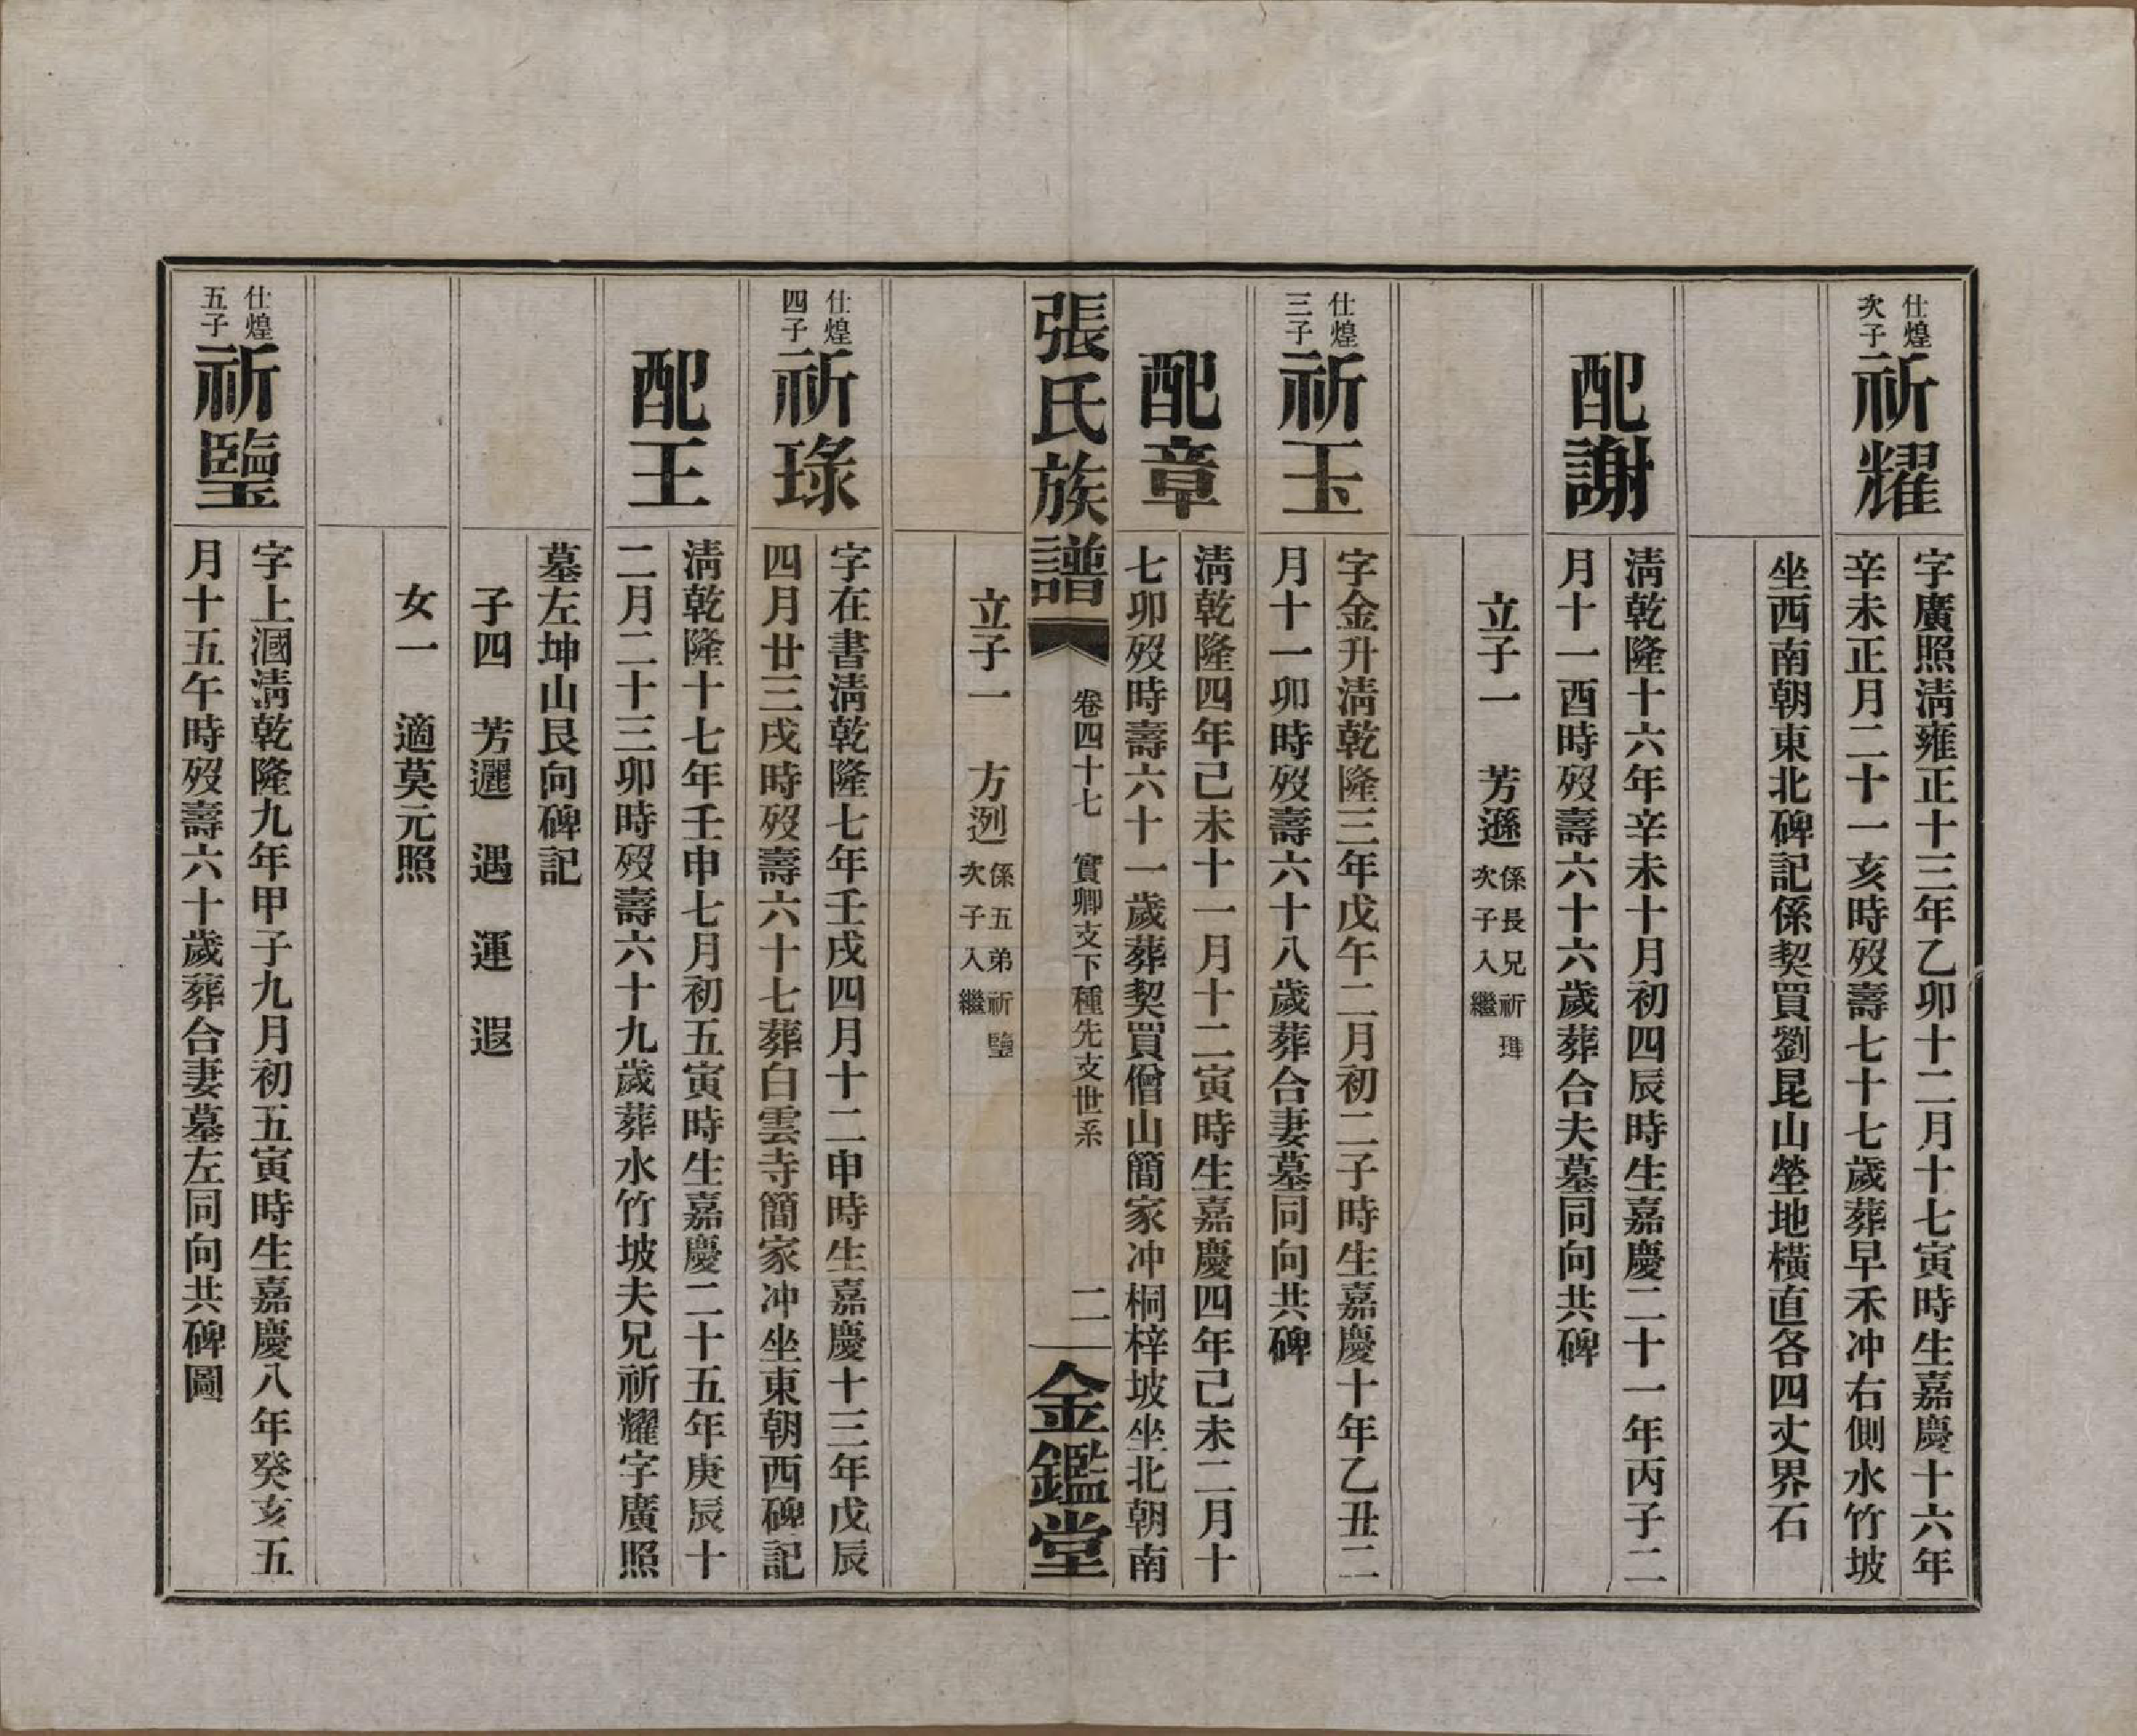 仕煌
次子
祈耀
字廣照淸雍正十三年乙卯十二月十七寅時生嘉慶十六年
辛未正月二十一亥時歿壽七十七歲葬早禾冲右側水竹坡
坐西南朝東北碑記係契買劉昆山塋地橫直各四丈界石
配謝
淸乾隆十六年辛未十月初四辰時生嘉慶二十一年丙子二
月十一酉時歿壽六十六歲葬合夫墓同向共碑
立子一　芳遜
係長兄祈
次子入繼
仕煌
三子
祈玉
字金升淸乾隆三年戊午二月初二子時生嘉慶十年乙丑二
月十一卯時歿壽六十八歲葬合妻墓同向共碑
配章
淸乾隆四年己未十一月十二寅時生嘉慶四年己未二月十
七卯歿時壽六十一歲葬契買僧山簡家冲桐梓坡坐北朝南
張氏族譜
卷四十七　實卿支下種先支世系
二
金鑑堂
立子一　方迾
係五弟祈鑒
次子入繼
仕煌
四子
祈琭
字在書淸乾隆七年壬戌四月十二申時生嘉慶十三年戊辰
四月廿三戌時歿壽六十七葬白雲寺簡家冲坐東朝西碑記
配王
淸乾隆十七年壬申七月初五寅時生嘉慶二十五年庚辰十
二月二十三卯時歿壽六十九歲葬水竹坡夫兄祈耀字廣照
墓左坤山艮向碑記
子四　芳邐　遇　運　遐
女一　適莫元照
仕煌
五子
祈
字上淸乾隆九年甲子九月初五寅時生嘉慶八年癸亥五
月十五午時歿壽六十歲葬合妻墓左同向共碑圖